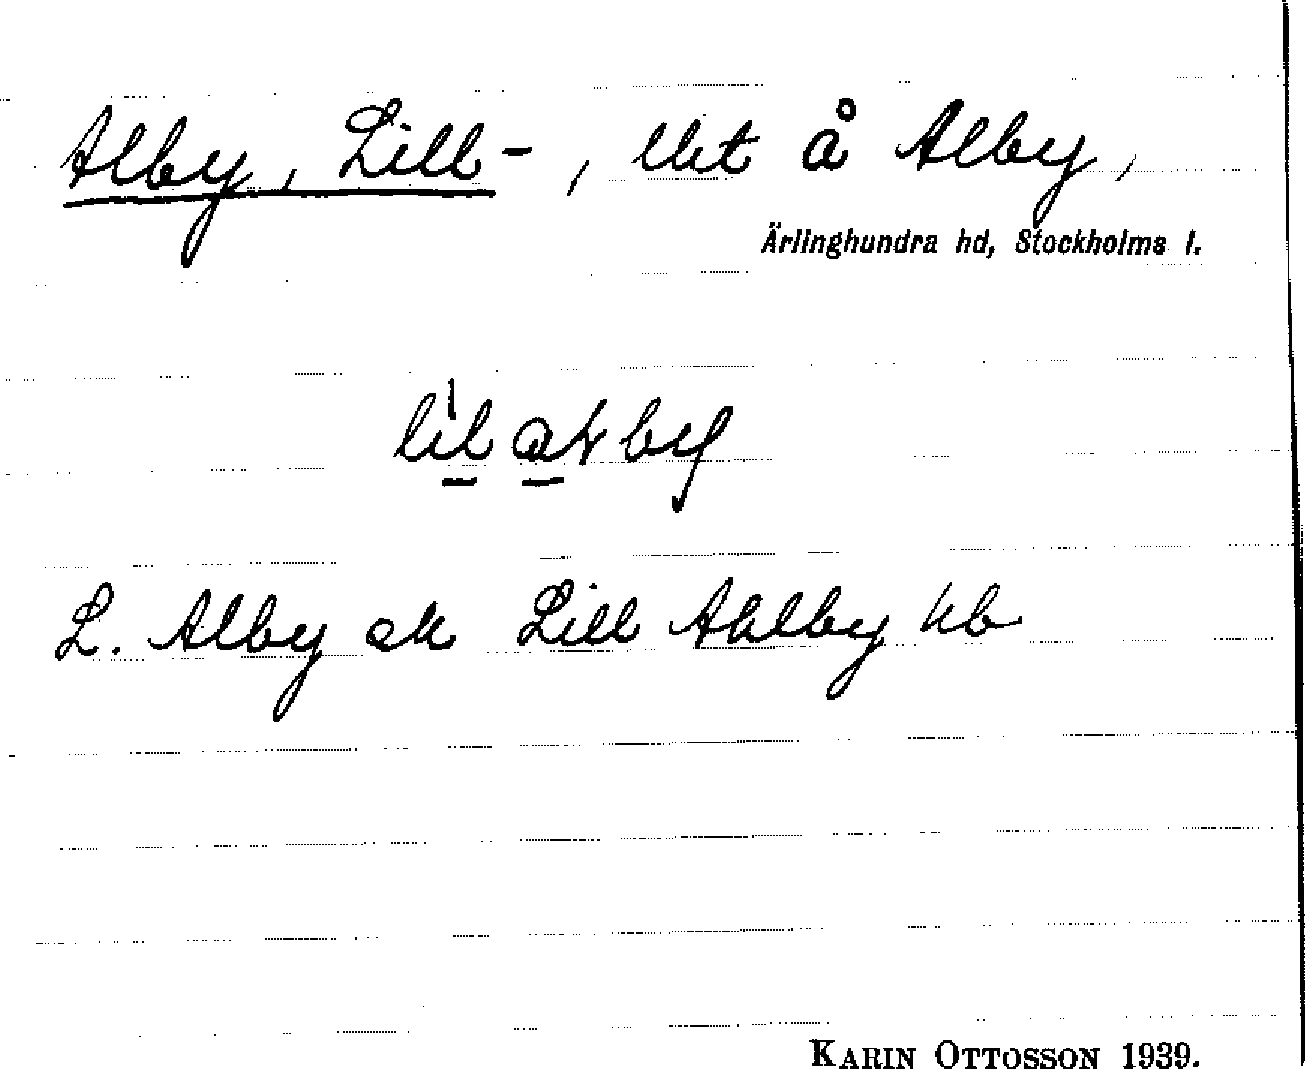 Alby, Lill-, lht å Alby,
Ärlinghundra hd, Stockholms l.
L. Alby ek Lill Ahlby kb
KARIN OTTOSSON 1939.